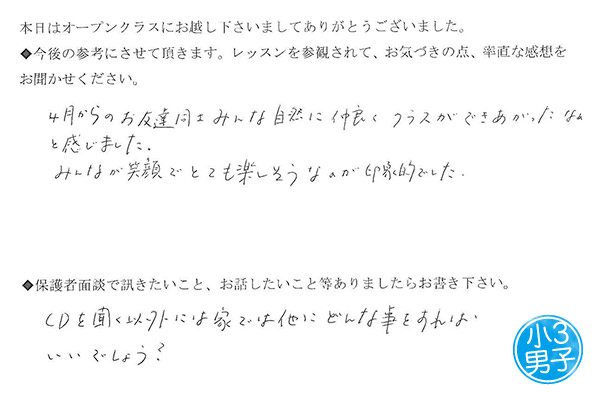 本日はオープンクラスにお越し下さいましてありがとうございました。
◆今後の参考にさせて頂きます。レッスンを参観されて、お気づきの点、率直な感想を
お聞かせください。
4月からのお友達同士みんな自然に仲良くクラスができあがったなぁ
と感じました。
みんなが笑顔でとても楽しそうなのが印象的でした。
◆保護者面談で訊きたいこと、お話したいこと等ありましたらお書き下さい。
CDを聞く以外には家では他にどんな事をすれば
いいでしょう?
小3
男子